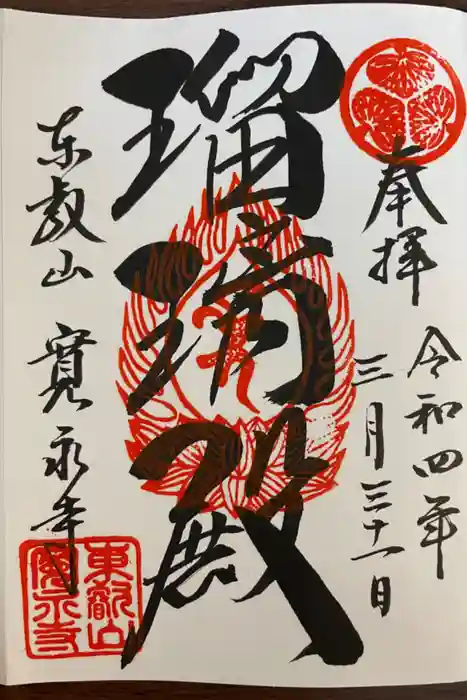 奉拝
令和四年
三月三十一日
瑠璃殿
东叡山
寛永寺
東叡山
寛永寺